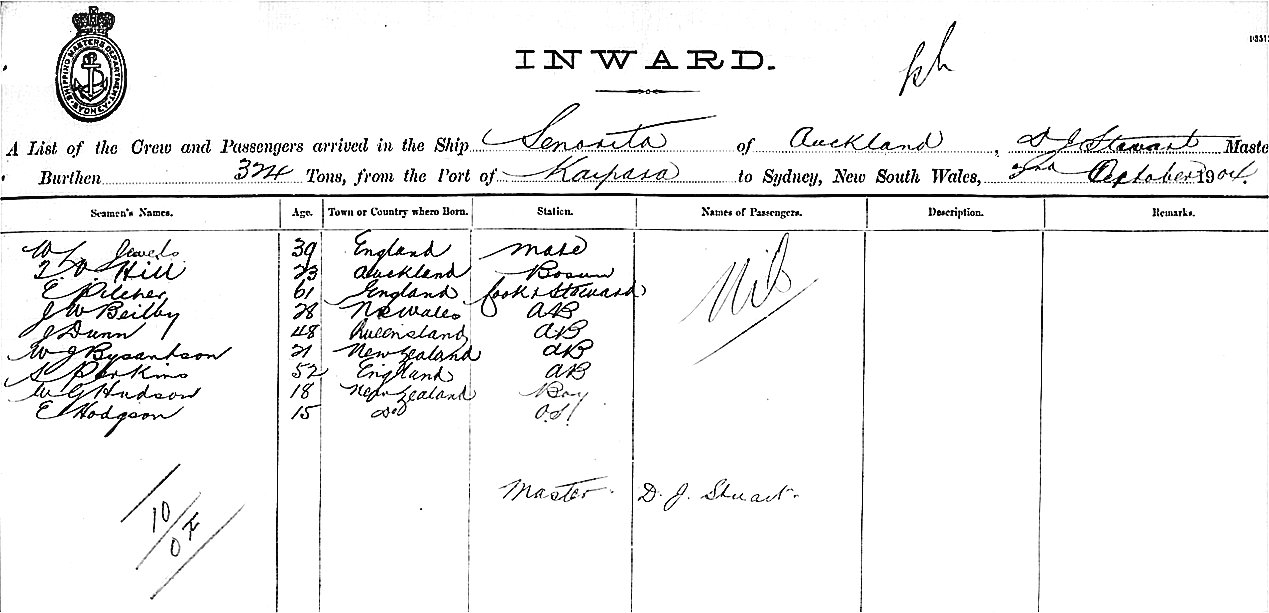 SHIPPING MASTER'S DEPARTMENT. SYDNEY
INWARD.
A List of the Crew and Passengers arrived in the Ship Senorita of Auckland, D J Stewart Maste
Burthen 324 Tons, from the Port of Kaipara to Sydney, New South Wales, 3rd October 1904.
Seamen's Names. Age. Town or Country where Born. Station. Names of Passengers. Description. Remarks.
W Jewels 39 England Mate Nil
Hill 23 Auckland Bosun
E Pilcher 61 England Cook & Steward
J W Beilby 28 N S Wales AB
J Dunn 48 Queensland AB
W J Bysantson 21 New Zealand AB
S Perkins 52 England AB
W G Hudson 18 New Zealand Boy
E Hodgson 15 Do O.S.
Master D. J. Stuart.
10